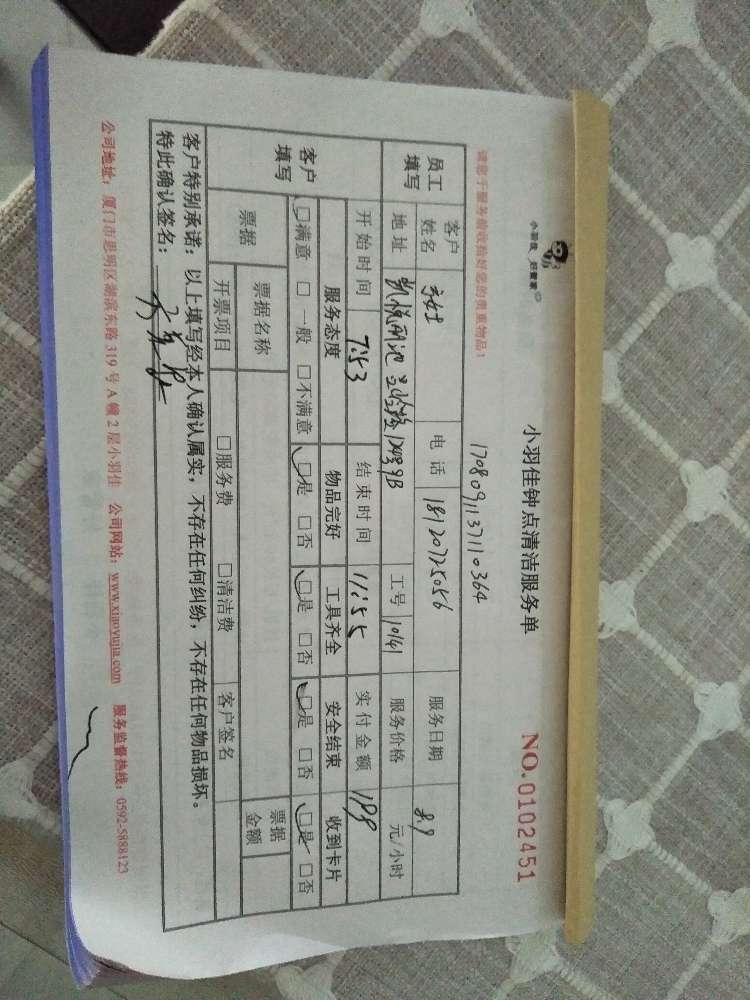 小羽佳 好管家
小羽佳钟点清洁服务单 NO.0102451
请您于服务前收拾好您的贵重物品！ 17080911371110364
员工填写 客户姓名 电话 18120725056 服务日期 8.9
地址 凯悦丽池 129号9B 工号 10141 服务价格 元/小时
客户填写 开始时间 7:53 结束时间 11:55 实付金额 199
服务态度 物品完好 工具齐全 安全结束 收到卡片
□满意 □一般 □不满意 □是 □否 □是 □否 □是 □否 □是 □否
票据 票据名称 票据金额
开票项目 □服务费 □清洁费 客户签名
客户特别承诺：以上填写经本人确认属实，不存在任何纠纷，不存在任何物品损坏。
特此确认签名：
公司地址：厦门市思明区湖滨东路319号A幢2层小羽佳 公司网站：www.xiaoyujia.com 服务监督热线：0592-5888123